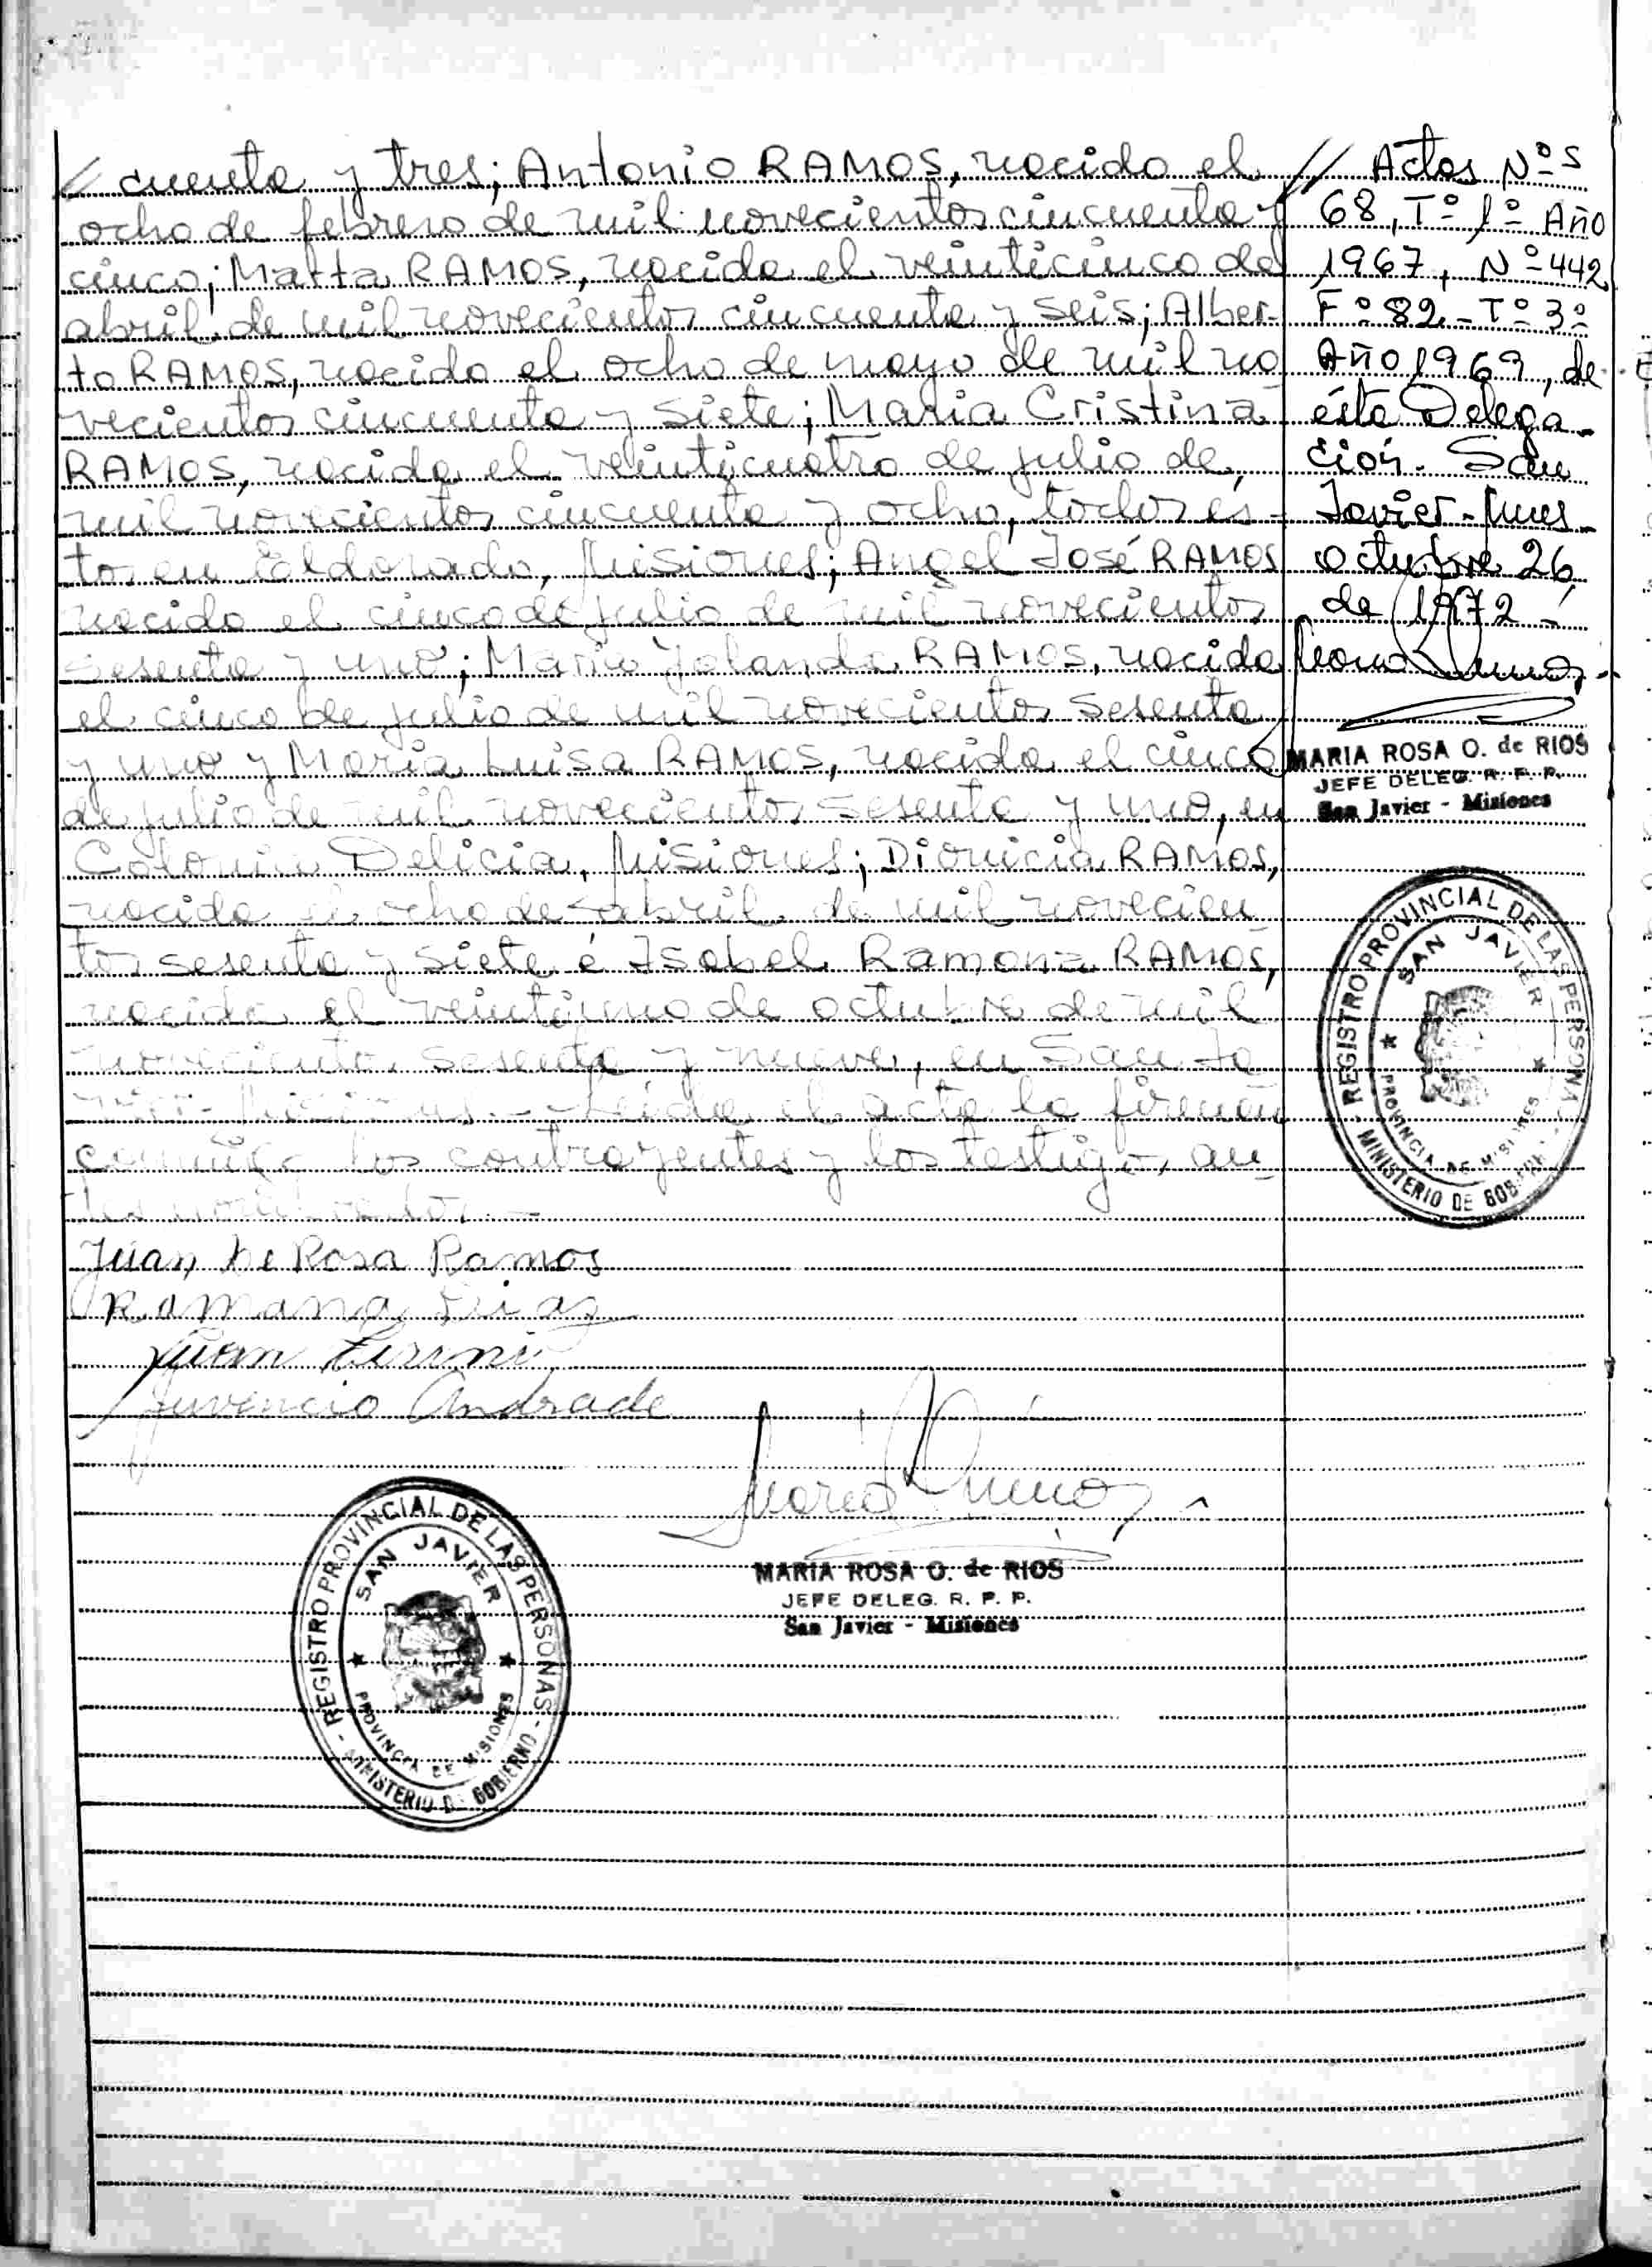 // cuenta y tres; Antonio RAMOS, nacido el
ocho de febrero de mil novecientos cincuenta y
cinco; Marta RAMOS, nacida el veinticinco de
abril de mil novecientos cincuenta y seis; Alber-
to RAMOS, nacido el ocho de mayo de mil no
vecientos cincuenta y siete; Maria Cristina
RAMOS, nacida el veinticuatro de julio de
mil novecientos cincuenta y ocho, todos és-
tos en Eldorado, Misiones; Angel José RAMOS
nacido el cinco de julio de mil novecientos
sesenta y uno; Maria Yolanda RAMOS, nacida
el cinco de julio de mil novecientos sesenta
y uno y Maria Luisa RAMOS, nacida el cinco
de julio de mil novecientos sesenta y uno, en
Colonia Delicia, Misiones; Dionicia RAMOS,
nacida el ocho de abril de mil novecien
tos sesenta y siete é Isabel Ramona RAMOS,
nacida el veintiuno de octubre de mil
novecientos sesenta y nueve, en San Ja
vier - Misiones.- Leída el acta la firman
conmigo los contrayentes y los testigos an-
tes nombrados.-
Juan De Rosa Ramos
Ramona
Juan
Juvencio Andrade
MARIA ROSA O. de RIOS
JEFE DELEG. R. P. P.
San Javier - Misiones
REGISTRO PROVINCIAL DE LAS PERSONAS - MINISTERIO DE GOBIERNO -
SAN JAVIER
PROVINCIA DE MISIONES
// Actas Nºs
68, Tº 1º Año
1967, Nº 442
Fº 82 - Tº 3º
Año 1969, de
ésta Delega-
ción. San
Javier - Mnes-
octubre 26
de 1972 -
MARIA ROSA O. de RIOS
JEFE DELEG. R. P. P.
San Javier - Misiones
REGISTRO PROVINCIAL DE LAS PERSONA - MINISTERIO DE
SAN JAVIER
PROVINCIA DE MISIONES